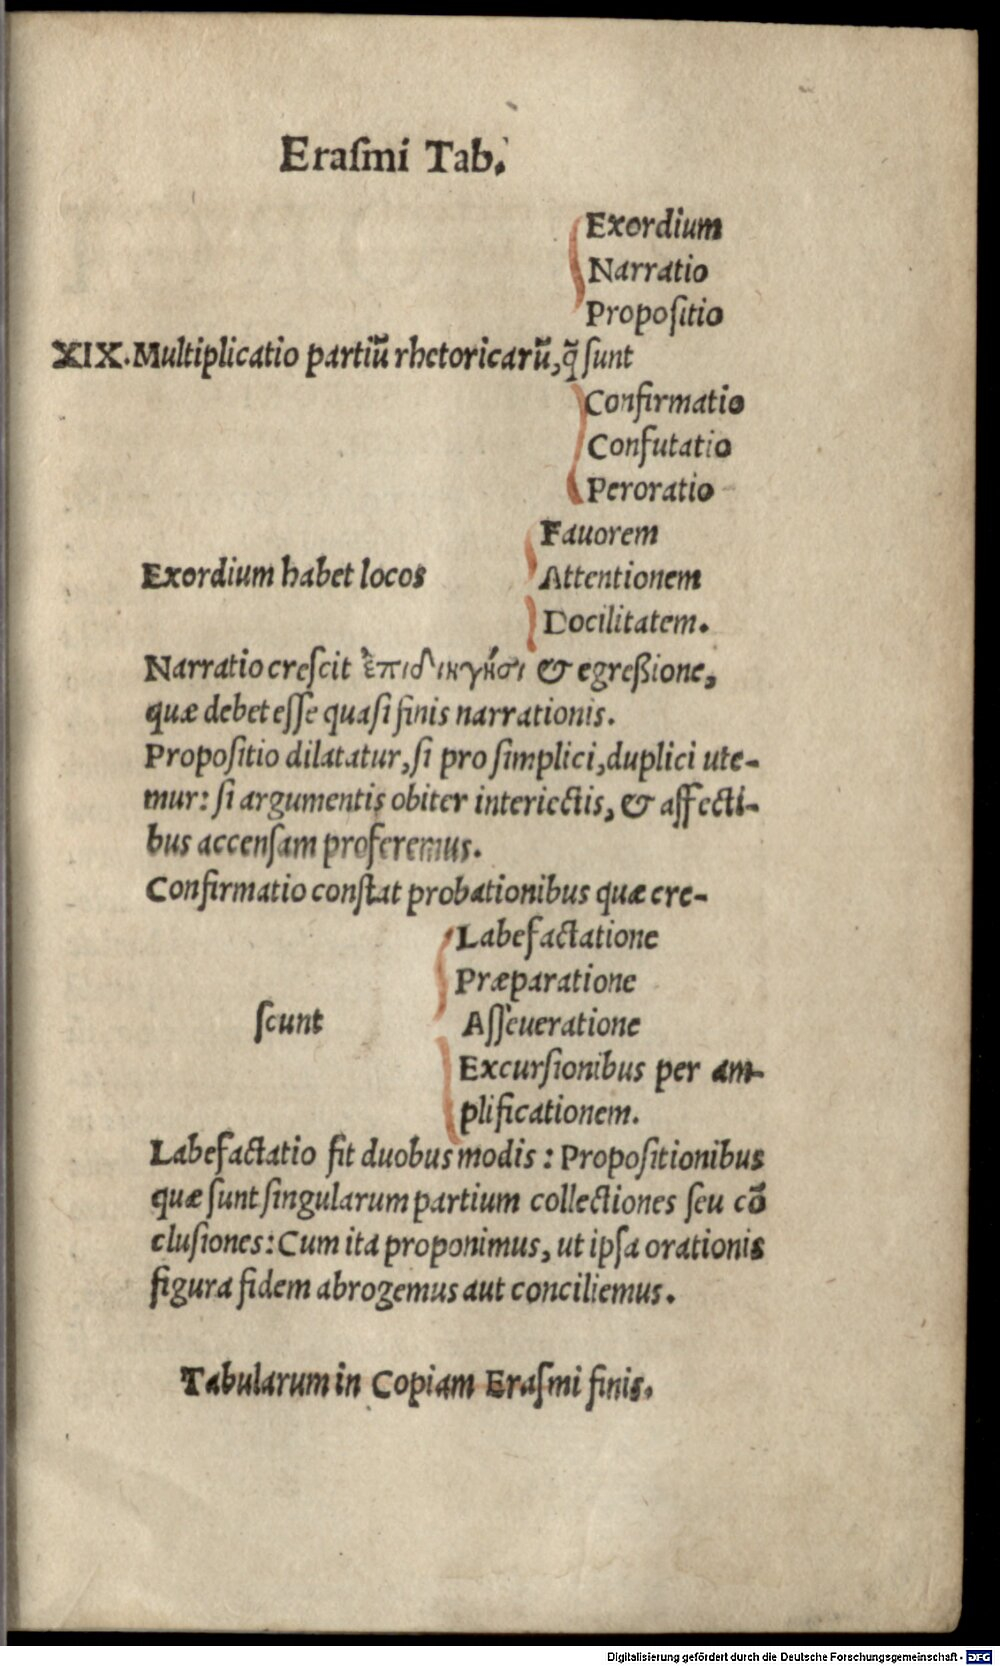 Eraſmi Tab.
Exordium
Narratio
Propoſitio
XIX. Multiplicatio partiū rhetoricarū, q̃ ſunt
Confirmatio
Confutatio
Peroratio
Fauorem
Exordium habet locos
Attentionem
Docilitatem.
Narratio creſcit ἐπιδικγήσι & egreßione,
quæ debet eſſe quaſi finis narrationis.
Propoſitio dilatatur, ſi pro ſimplici, duplici ute-
mur: ſi argumentis obiter interiectis, & affecti-
bus accenſam proferemus.
Confirmatio conſtat probationibus quæ cre-
Labefactatione
Præparatione
ſcunt
Aſſeueratione
Excurſionibus per am-
plificationem.
Labefactatio fit duobus modis: Propoſitionibus
quæ ſunt ſingularum partium collectiones ſeu cō
cluſiones: Cum ita proponimus, ut ipſa orationis
figura fidem abrogemus aut conciliemus.
Tabularum in Copiam Eraſmi finis.
Digitalisierung gefördert durch die Deutsche Forschungsgemeinschaft - DFG